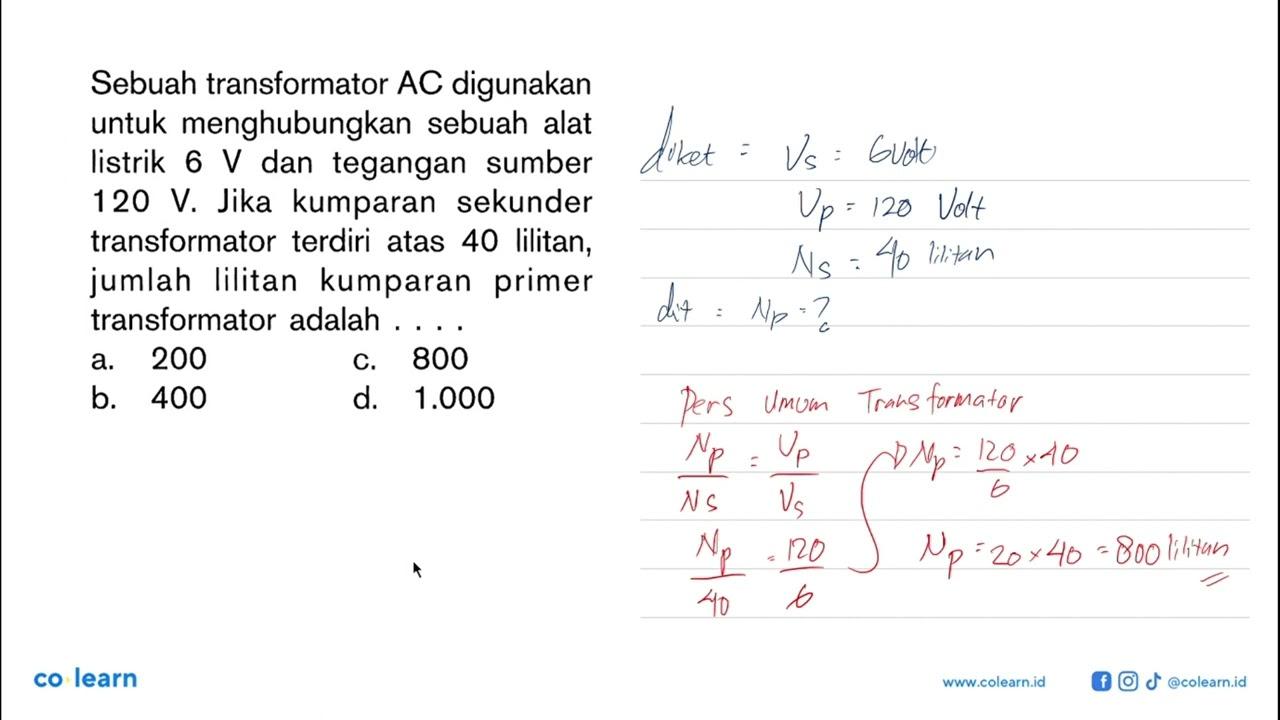 Sebuah transformator AC digunakan
untuk menghubungkan sebuah alat
listrik 6 V dan tegangan sumber
120 V. Jika kumparan sekunder
transformator terdiri atas 40 lilitan,
jumlah lilitan kumparan primer
transformator adalah . . . .
a. 200 c. 800
b. 400 d. 1.000
diket = Vs = 6 Volt
Vp = 120 Volt
Ns = 40 lilitan
dit = Np = ?
Pers Umum Transformator
Np/Ns = Vp/Vs
Np/40 = 120/6
Np = 120/6 × 40
Np = 20 × 40 = 800 lilitan
co learn
www.colearn.id @colearn.id